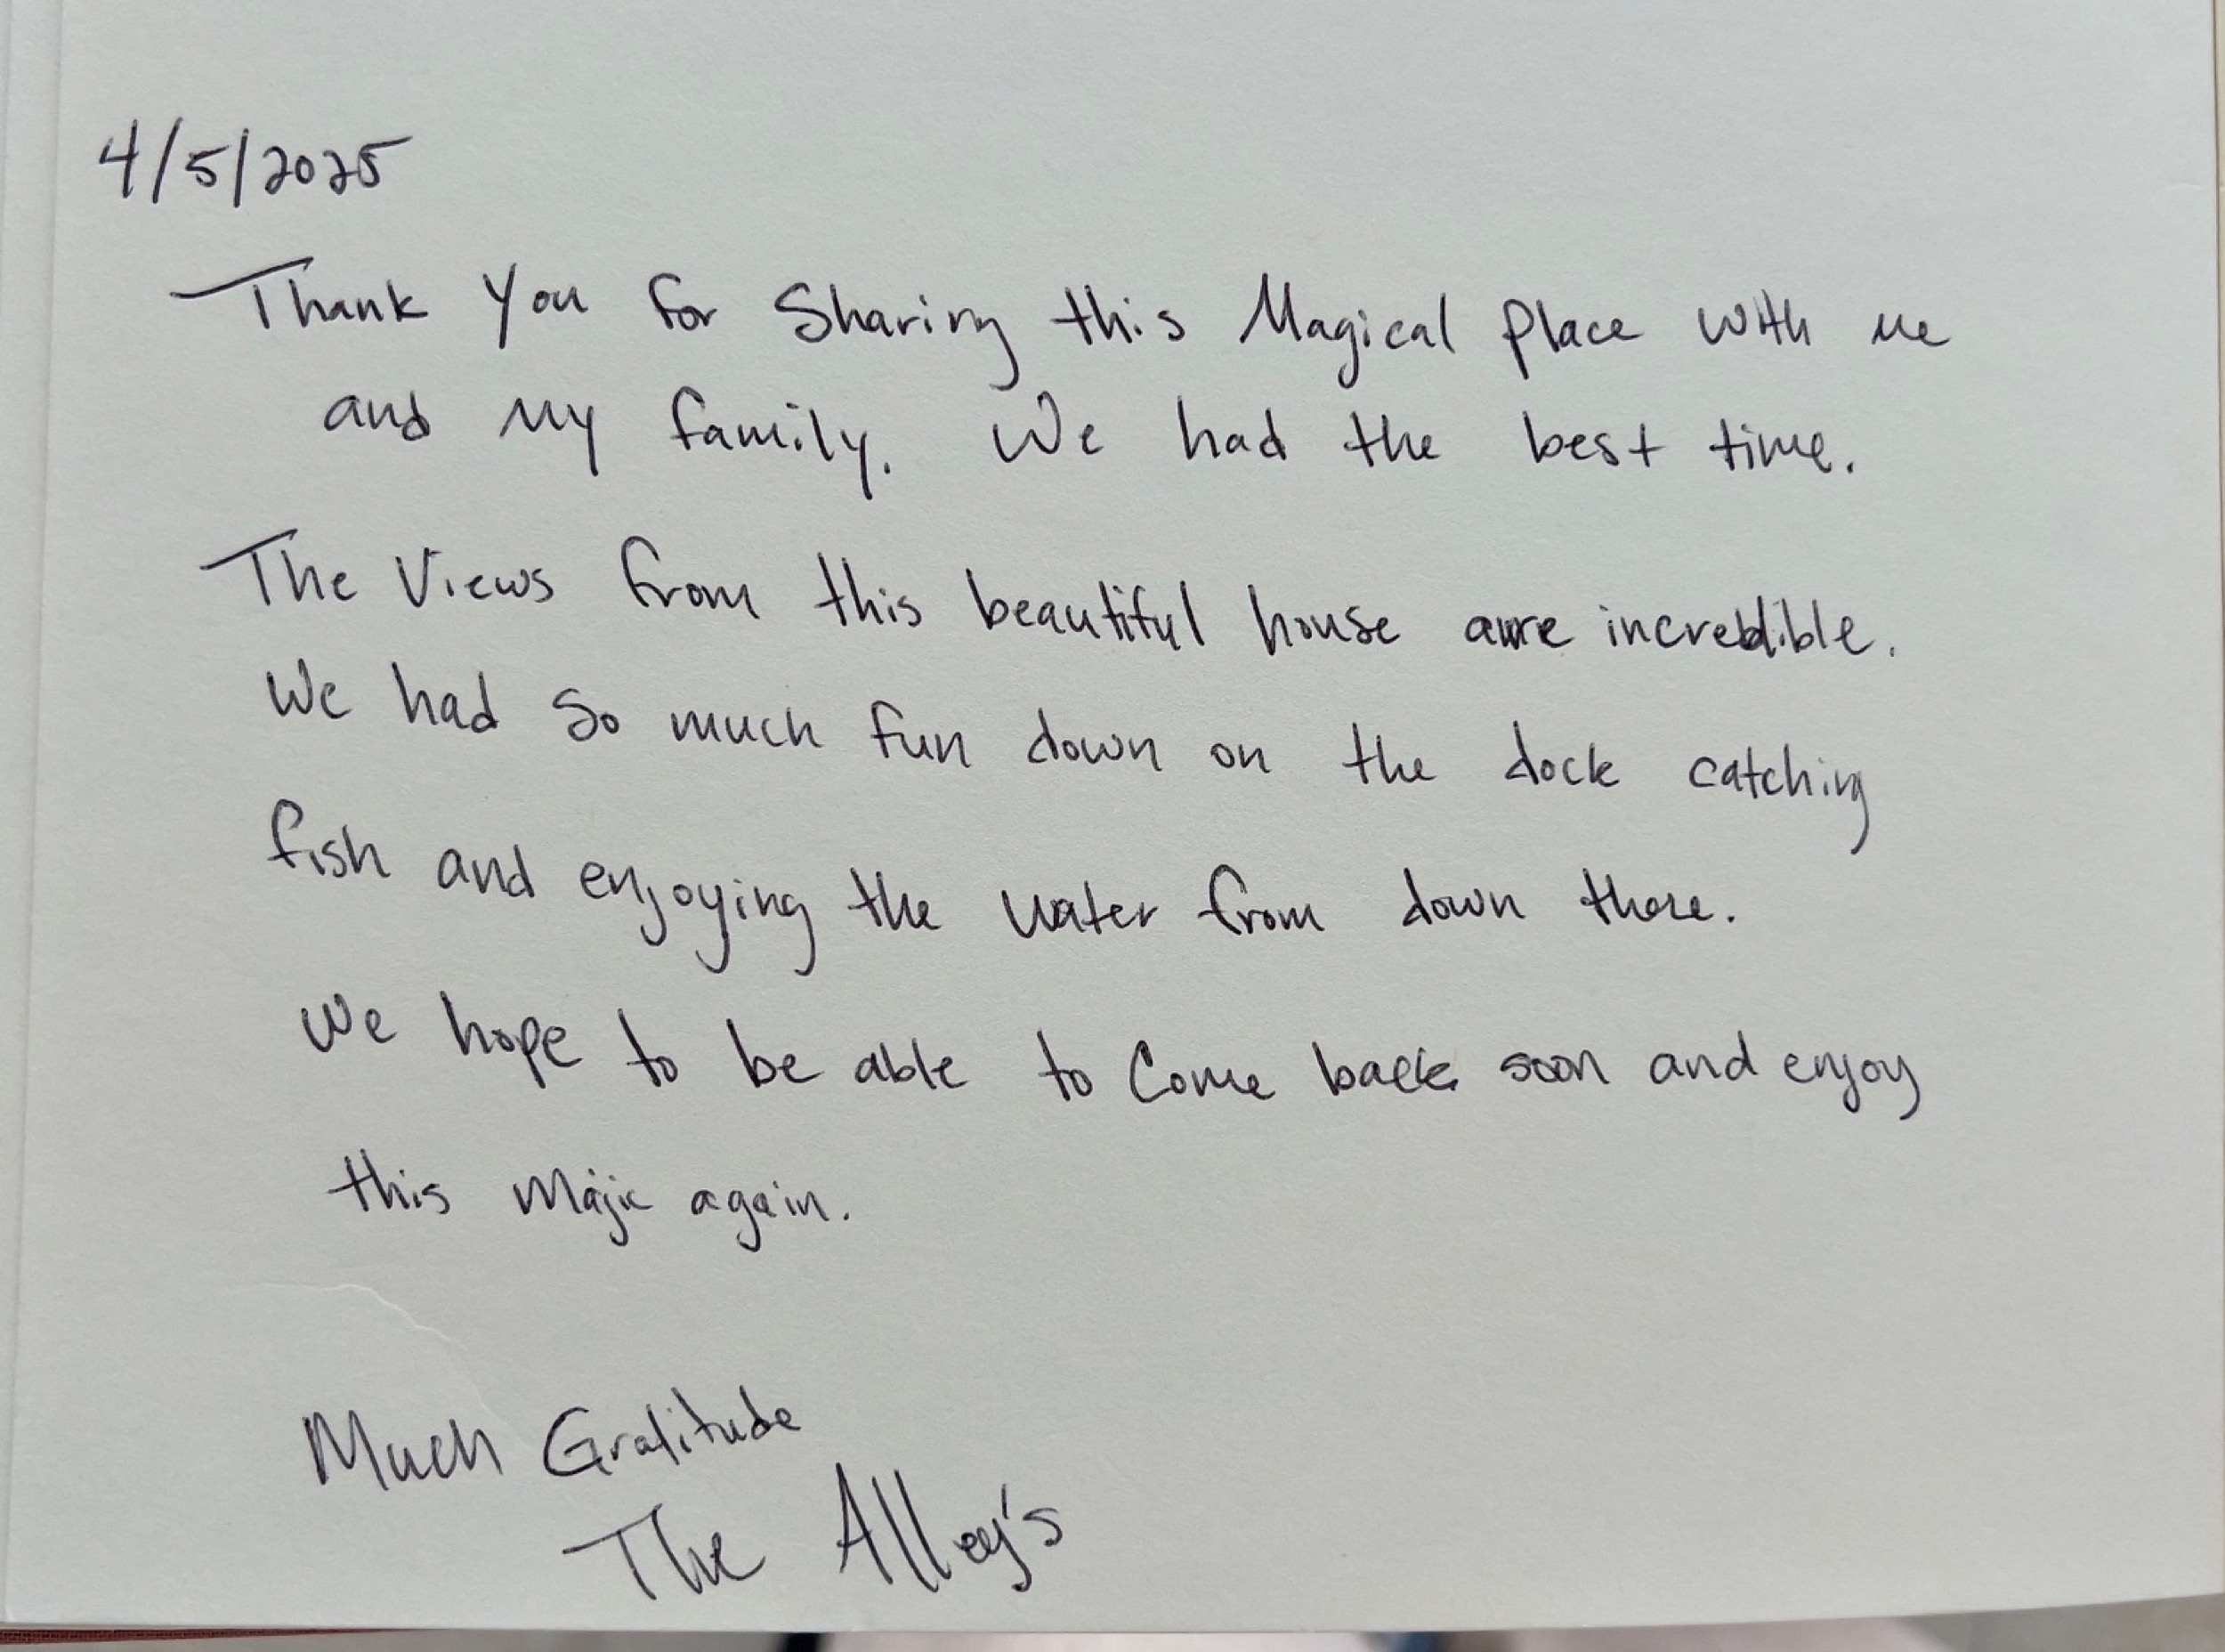 4/5/2025
Thank You for Sharing this Magical place with me
and my family. We had the best time.
The Views from this beautiful house are incredible.
We had so much fun down on the dock catching
fish and enjoying the water from down there.
We hope to be able to Come back soon and enjoy
this Majic again.
Much Gratitude
The Alley's